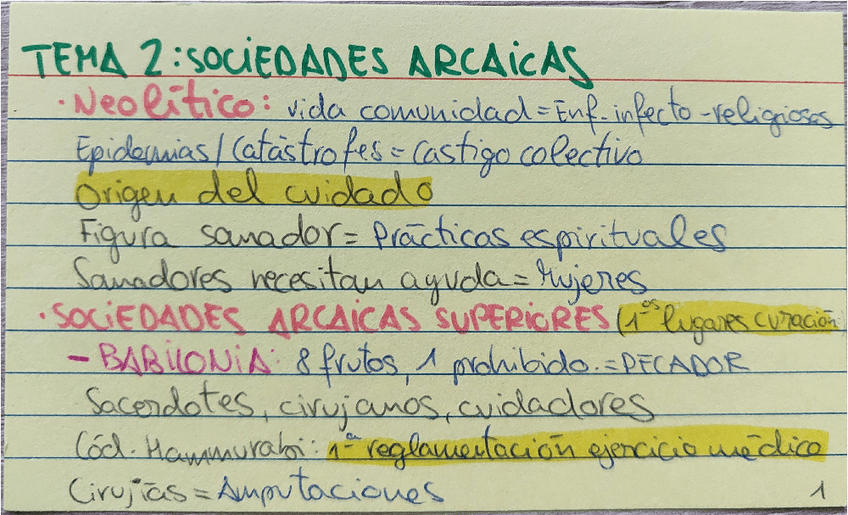 TEMA 2: SOCIEDADES ARCAICAS
· Neolítico: vida comunidad = Enf. infecto-religiosas
Epidemias / Catástrofes = Castigo colectivo
Origen del cuidado
Figura sanador = Prácticas espirituales
Sanadores necesitan ayuda = Mujeres
· SOCIEDADES ARCAICAS SUPERIORES (1ºs lugares curación)
- BABILONIA: 8 frutos, 1 prohibido. = PECADOR
Sacerdotes, cirujanos, cuidadores
Cód. Hammurabi: 1ª reglamentación ejercicio médico
Cirujías = Amputaciones
1